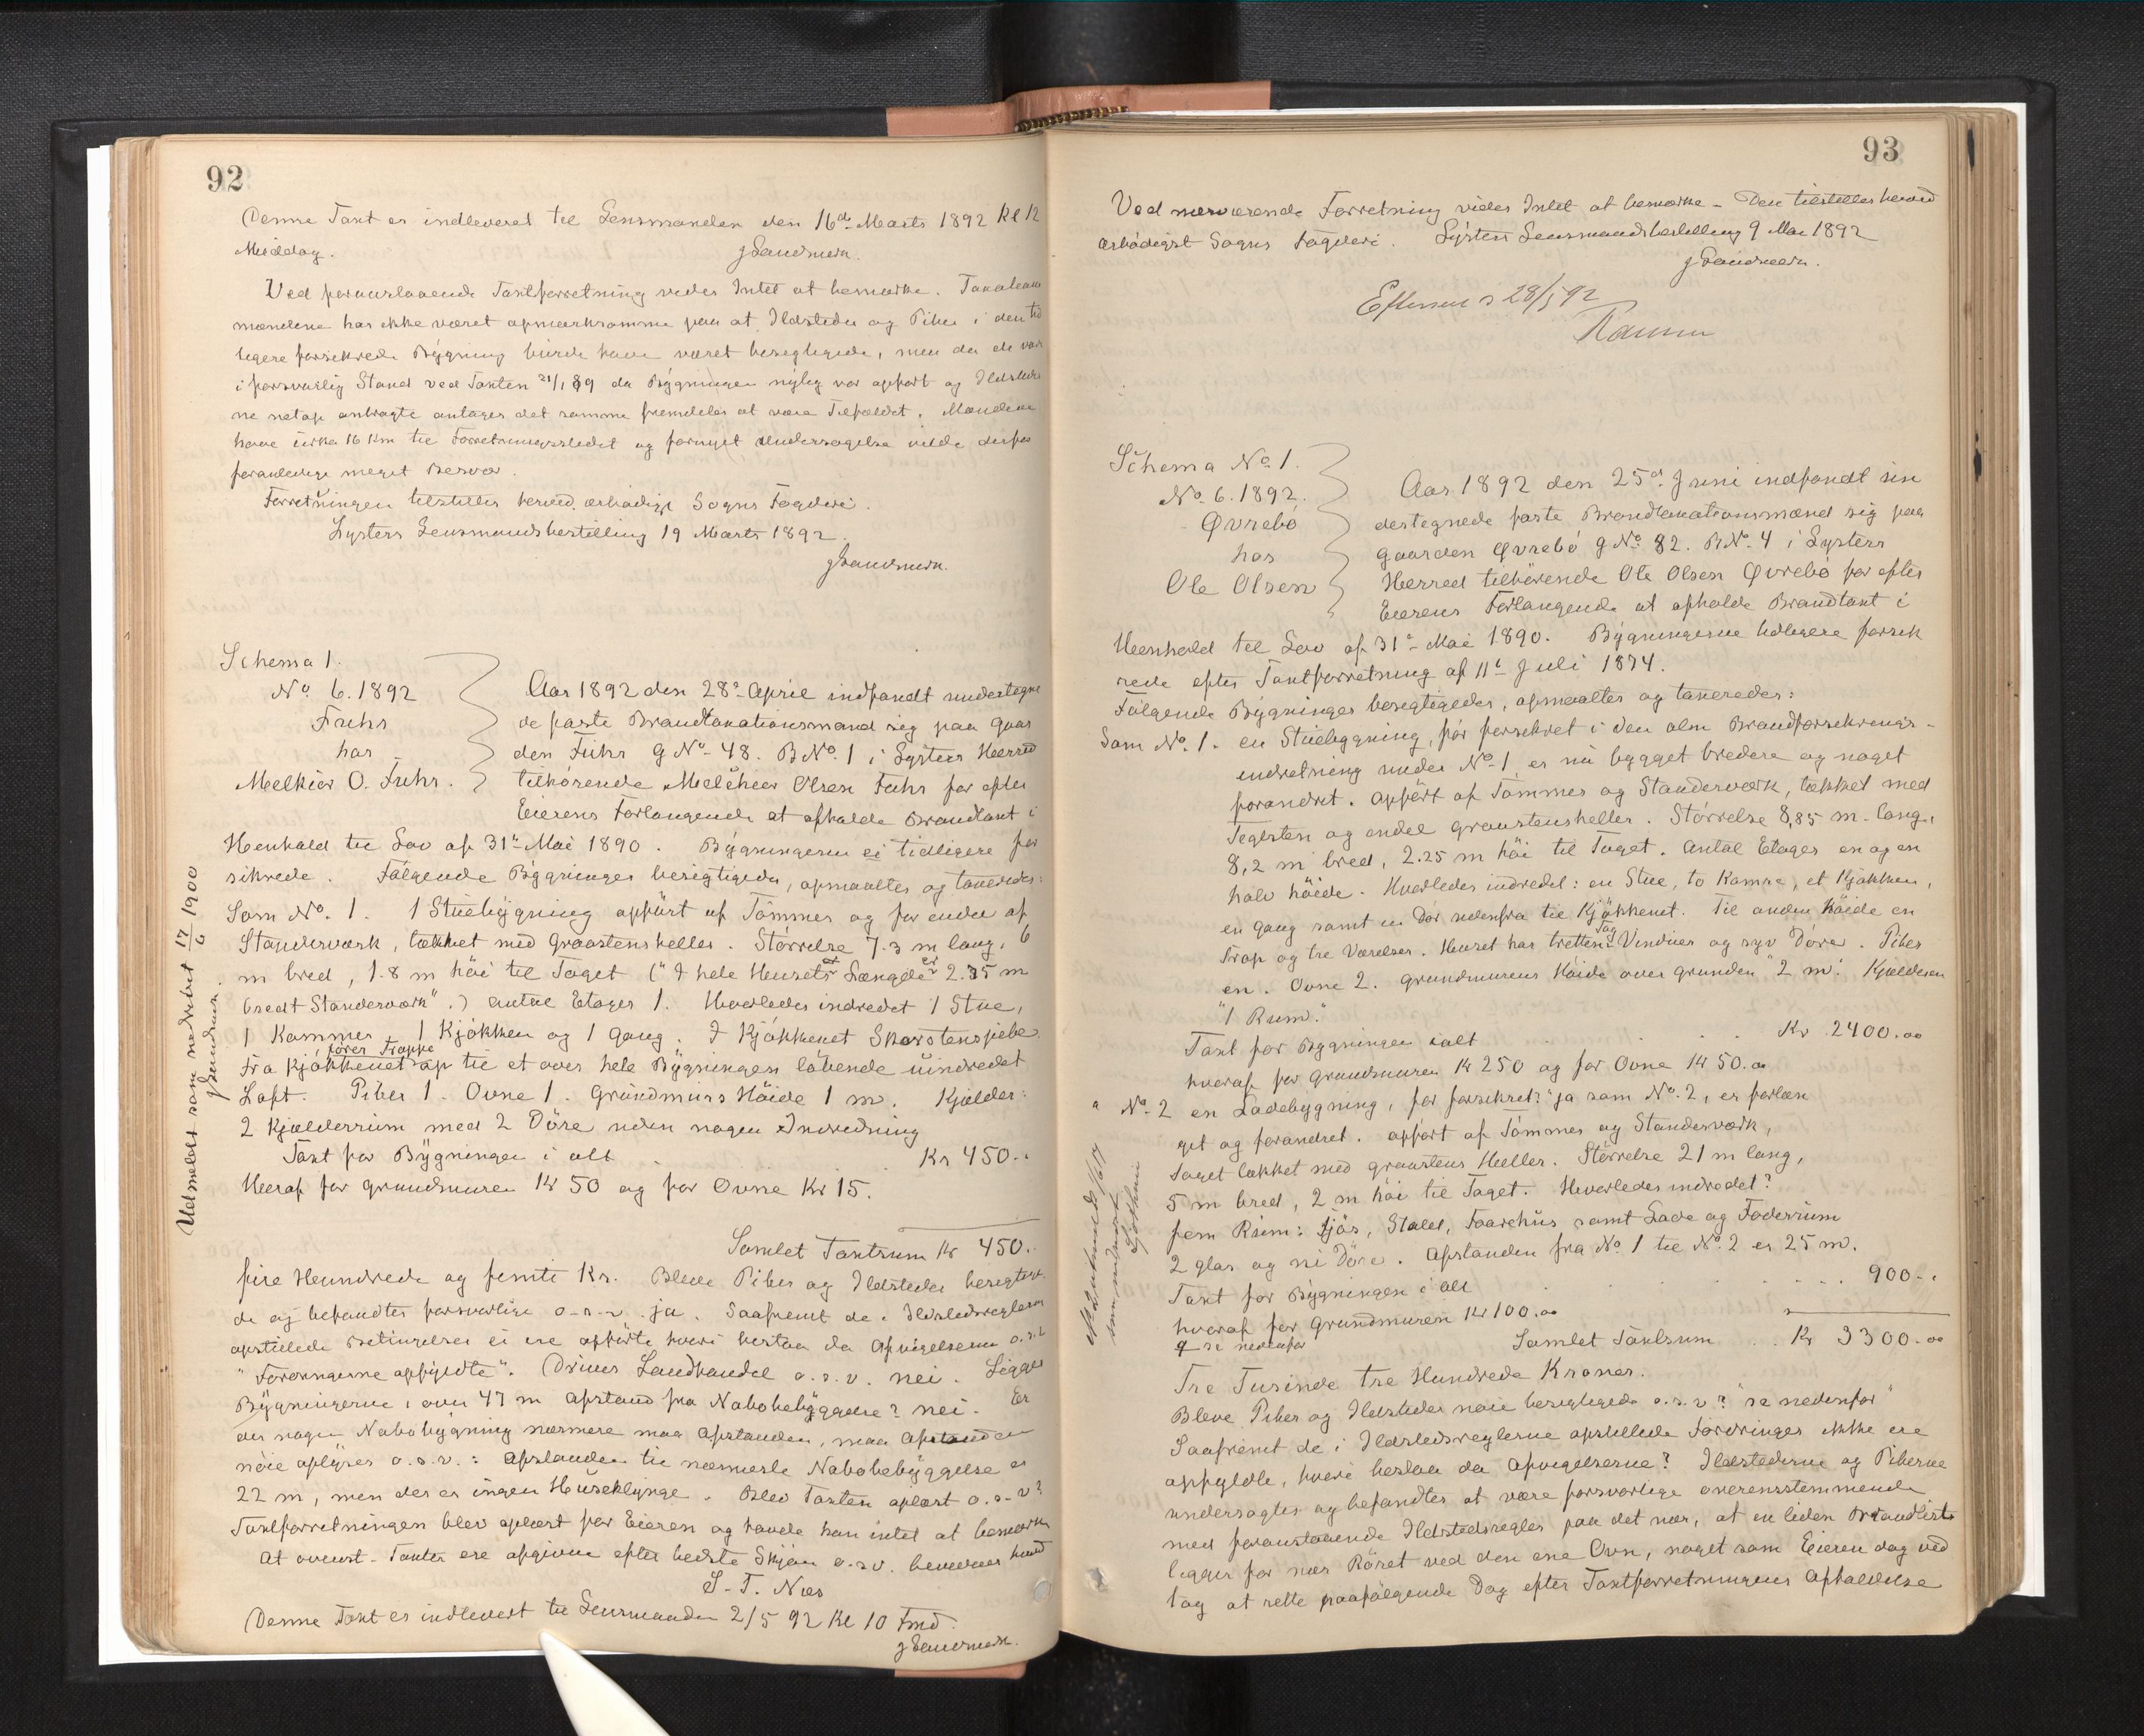 92
Denne Taxt er indleveret til Lensmanden den 16de Marts 1892 Kl 12
Middag.
J Sandmern.
Ved foranstaaende Taxtforretning vides Intet at bemærke. Taxations
mændene har ikke været opmærksomme paa at Ildsteder og Piber i den tid
ligere forsikrede Bygning burde have været besigtigede, men da de var
i forsvarlig Stand ved Taxten 21/1 89 da Bygningen nylig var opført og Ildstede
ne netop anbragte antages det samme fremdeles at være Tilfældet. Mændene
have cirka 16 Km til Forretningsstedet og fornyet Undersøgelse vilde derfor
foranledige meget Besvær.
Forretningen tilstilles herved ærbødigst Sogns Fogderi.
Lysters Lensmandsbestilling 19 Marts 1892.
J Sandmern.
Schema 1.
No 6. 1892
Fuhr
hos
Melkior O. Fuhr.
Aar 1892 den 28de April indfandt undertegne
de faste Brandtaxationsmænd sig paa Gaar
den Fuhr G No 48. B No 1 i Lysters Herred
tilhørende Melchior Olsen Fuhr for efter
Eierens Forlangende at afholde Brandtaxt i
Henhold til Lov af 31te Mai 1890. Bygningerne ei tidligere for
sikrede. Følgende Bygninger besigtigedes, opmaaltes og taxeredes:
Som No. 1. 1 Stuebygning opført af Tømmer og for enden af
Standerværk, tækket med Graastensheller. Størrelse 7.3 m lang, 6
m bred, 1.8 m høi til Taget ("I hele Husets Længde er 2.35 m
bredt Standerværk".) Antal Etager 1. Hvorledes indredet 1 Stue,
1 Kammer 1 Kjøkken og 1 Gang. I Kjøkkenet Skorstenspibe.
fører Trappe
Fra Kjøkkenet op til et over hele Bygningen løbende uindredet
Loft. Piber 1. Ovne 1. Grundmurs Høide 1 m. Kjelder:
2 Kjælderrum med 2 Døre uden nogen Indredning
Taxt for Bygningen i alt Kr 450..
Heraf for Grundmuren Kr 50 og for Ovne Kr 15.
Samlet Taxtsum Kr 450..
fire Hundrede og femti Kr. Bleve Piber og Ildsteder besigtige
de og befandtes forsvarlige o.s.v. ja. Saafremt de i Ildstedsreglerne
opstillede Betingelser ei ere opførte hvori bestaa da Afvigelserne o.s.v.
"Fordringerne opfyldte". Drives Landhandel o.s.v. nei. Ligger
Bygningerne i over 47 m Afstand fra Nabobebyggelse? nei. Er
der nogen Nabobygning nærmere maa Afstanden, maa Afstanden
nøie oplyses o.s.v.: Afstanden til nærmeste Nabobebyggelse er
22 m, men der er ingen Huseklynge. Blev Taxten oplæst o.s.v?
Taxtforretningen blev oplæst for Eieren og havde han intet at bemærke
At ovenst. Taxter ere afgivne efter bedste Skjøn o.s.v. bevidnes herved
S. T. Næs
Denne Taxt er indlevert til Lensmanden 2/5 92 Kl 10 Fmd.
J Sandmern.
Udmeldt som nedrevet 17/6 1900
J Sandmern.
93
Ved nærværende Forretning vides Intet at bemærke – Den tilstilles herved
ærbødigst Sogns Fogderi. Lysters Lensmandsbestilling 9 Mai 1892
J Sandmern.
Efterseet 28/5 92
Schema No 1.
No 6. 1892.
Øvrebø
hos
Ole Olsen
Aar 1892 den 25de Juni indfandt un
dertegnede faste Brandtaxationsmænd sig paa
Gaarden Øvrebø G No 82. B No. 4 i Lysters
Herred tilhørende Ole Olsen Øvrebø for efter
Eierens Forlangende at afholde Brandtaxt i
Henhold til Lov af 31te Mai 1890. Bygningerne tidligere forsik
rede efter Taxtforretning af 11te Juli 1874.
Følgende Bygninger besigtigedes, opmaaltes og taxeredes:
Som No. 1. en Stuebygning, før forsikret i den alm Brandforsikrings-
indretning under No 1, er nu bygget bredere og noget
forandret. Opført af Tømmer og Standerværk, tækket med
Teglsten og endel Graastensheller. Størrelse 8,85 m. lang,
8,2 m bred, 2.25 m høi til Taget. Antal Etager en og en
halv høide. Hvorledes indredet: en Stue, to Kamre, et Kjøkken,
en Gang samt en Dør udenfra til Kjøkkenet. Til anden Høide en
Trap og tre Værelser. Huset har tretten Fag Vinduer og syv Døre. Piber
en. Ovne 2. Grundmurens Høide over Grunden "2 m". Kjælderen
"1 Rum".
Taxt for Bygningen ialt Kr 2400.00
hvoraf for Grundmuren Kr 250 og for Ovne Kr 50.00
" No. 2 en Ladebygning, før forsikret? "ja som No. 2, er forlæn
get og forandret. Opført af Tømmer og Standerværk,
Taget tækket med Graastens Heller. Størrelse 21 m lang,
5 m bred, 2 m høi til Taget. Hvorledes indredet?
fem Rum: Fjøs, Stald, Faarehus samt Lade og Foderrum
2 glas og ni Døre. Afstanden fra No 1 til No 2 er 25 m.
Taxt for Bygningen i alt 900..
hvoraf for Grundmuren Kr 100.00
se nedenfor
Samlet Taxtsum Kr 3300.00
Tre Tusinde tre Hundrede Kroner.
Bleve Piber og Ildsteder nøie besigtigede o.s.v? "se nedenfor"
Saafremt de i Ildstedsreglerne opstillede Fordringer ikke ere
opfyldte, hvori bestaa da Afvigelserne? Ildstederne og Piberne
undersøgtes og befandtes at være forsvarlige overensstemmende
med foranstaaende Ildstedsregler paa det nær, at en liden Brandliste
ligger for nær Røret ved den ene Ovn, noget som Eieren dog ved
tog at rette paafølgende Dag efter Taxtforretningens Afholdelse